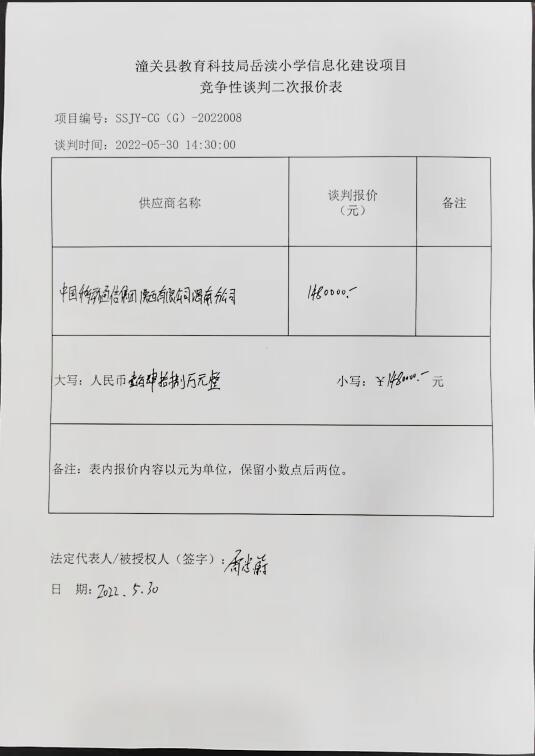 潼关县教育科技局岳渎小学信息化建设项目
竞争性谈判二次报价表
项目编号：SSJY-CG（G）-2022008
谈判时间：2022-05-30 14:30:00
供应商名称
谈判报价
（元）
备注
中国移动通信集团陕西有限公司渭南分公司
1480000.-
大写：人民币壹佰肆拾捌万元整
小写：￥1480000.-元
备注：表内报价内容以元为单位，保留小数点后两位。
法定代表人/被授权人（签字）：
日 期：2022.5.30